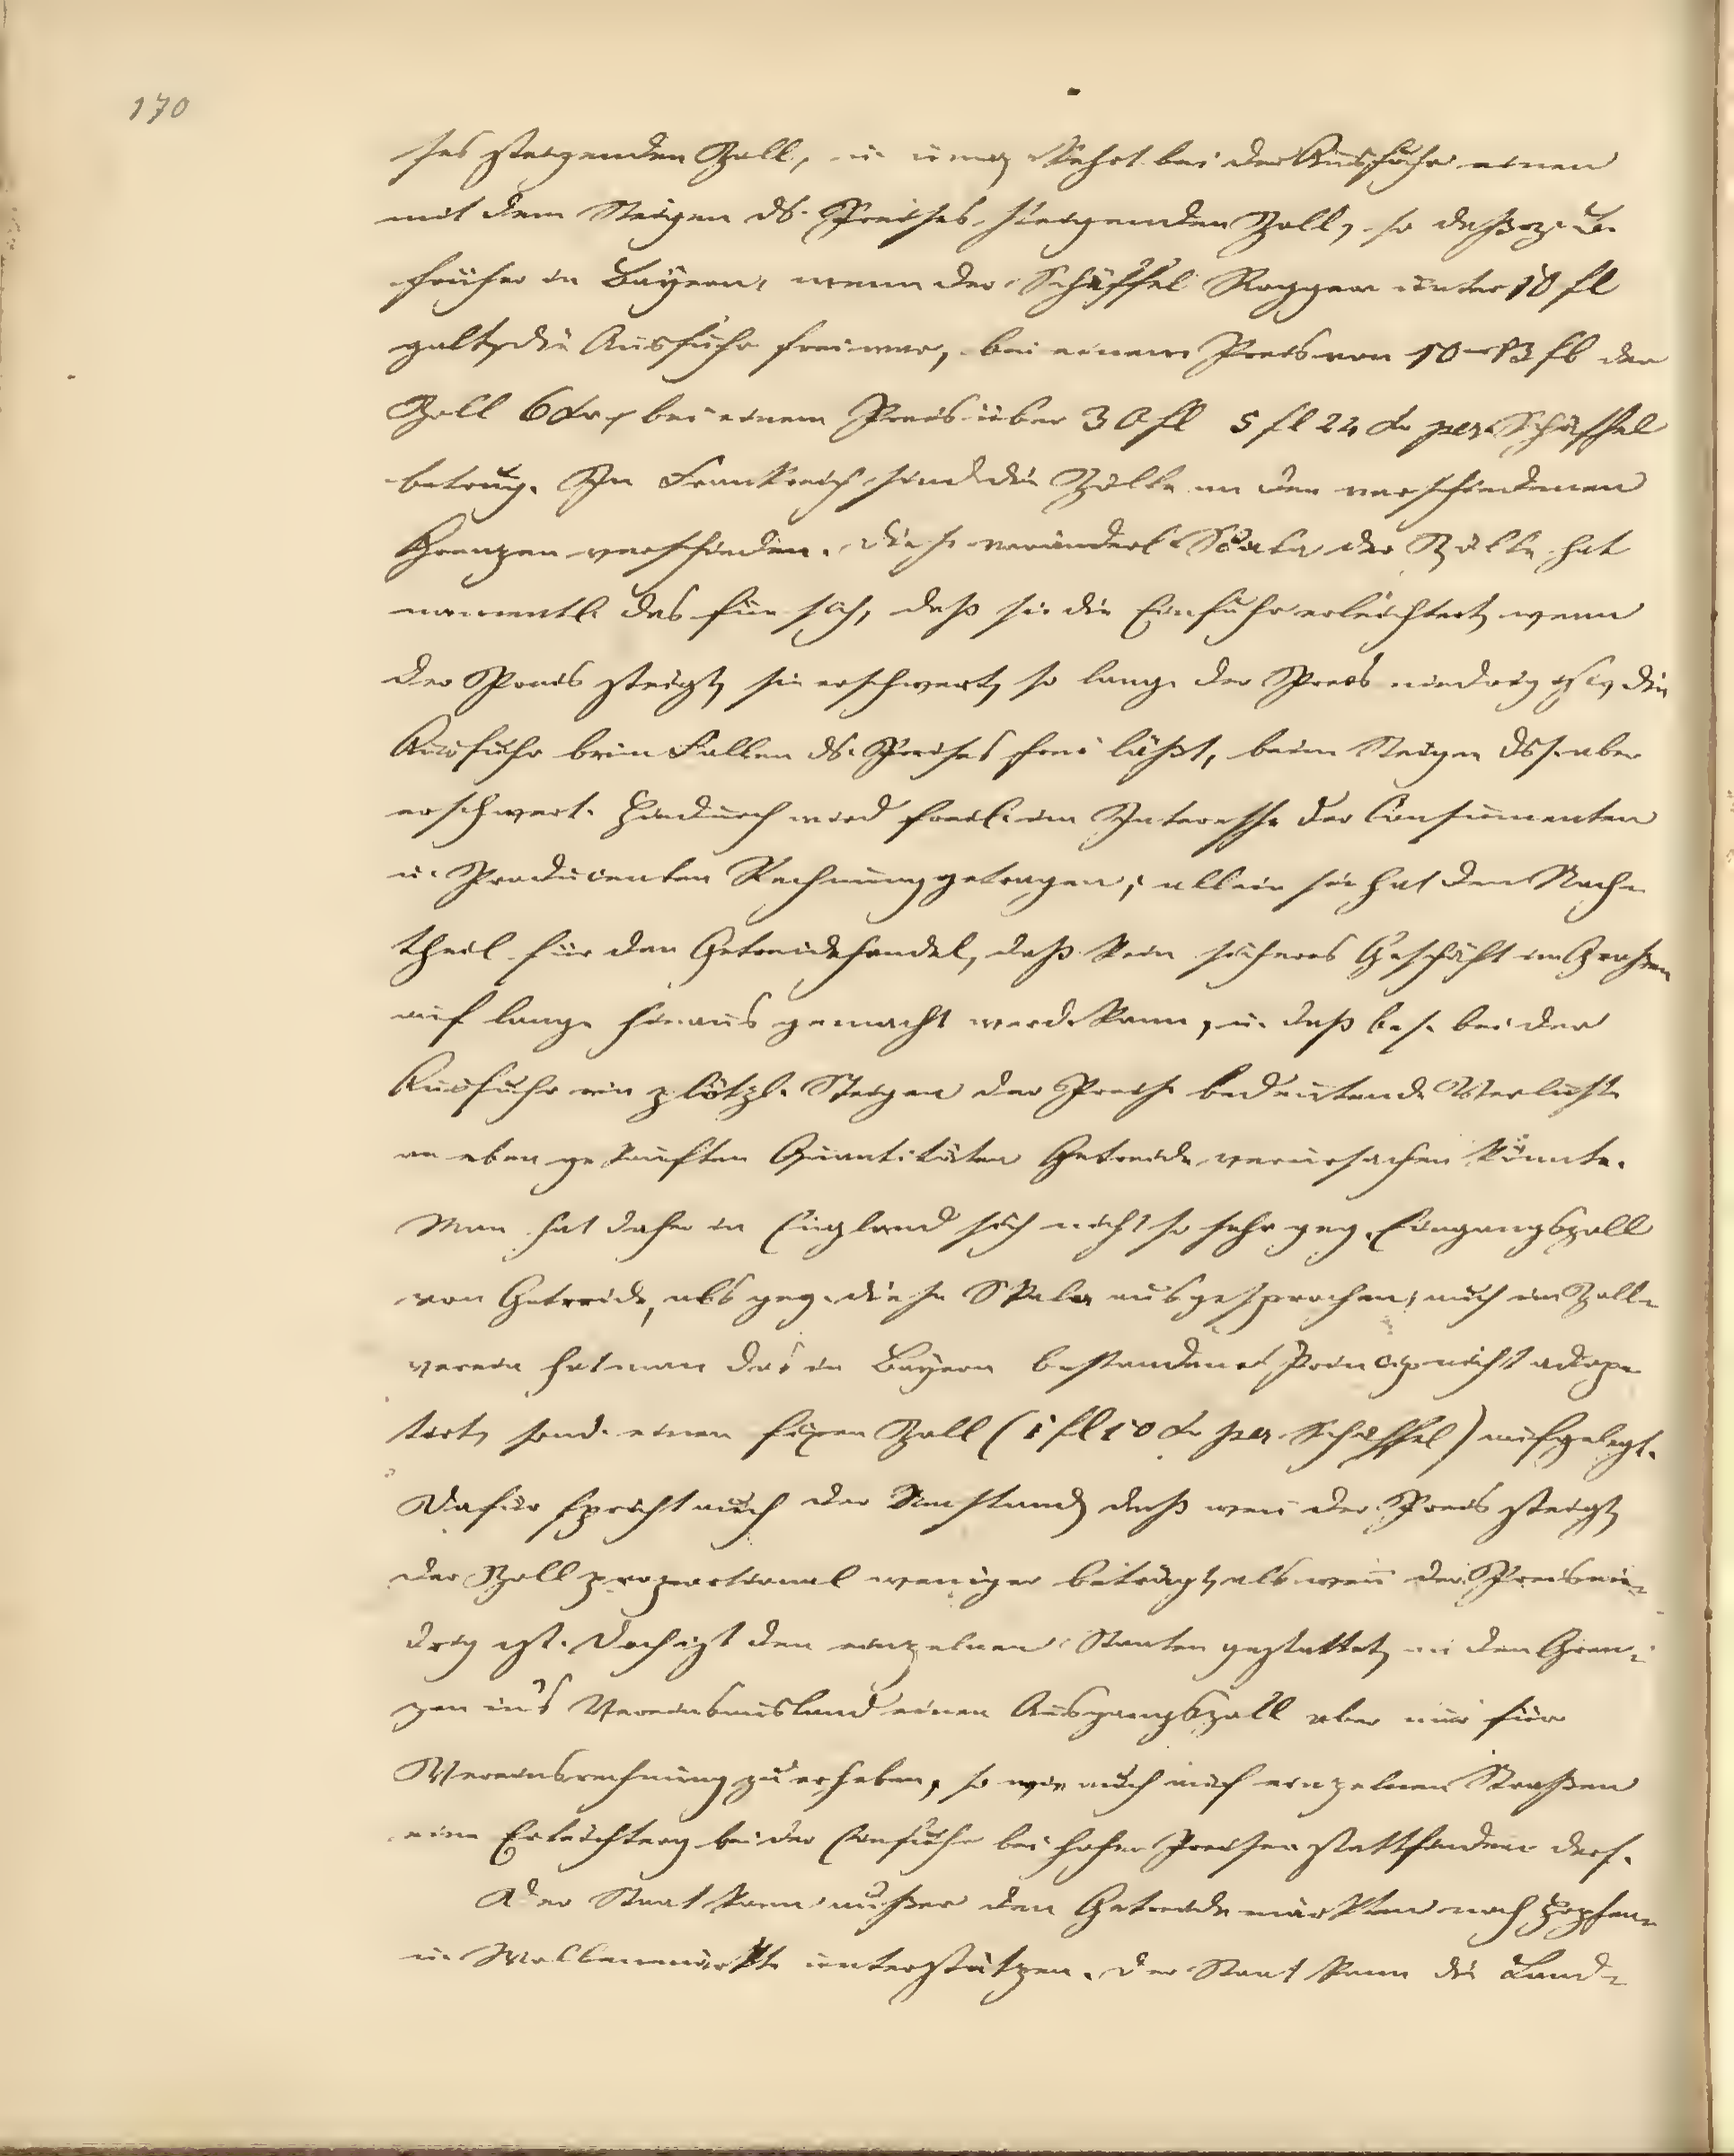 170
ses steigenden Zoll, u. umgekehrt bei der Ausfuhr einen
mit dem Steigen ds. Preises steigenden Zoll, so daß z. B.
früher in Bayern, wenn der Schäffel Roggen unter 10 fl
galt, die Ausfuhr frei war, bei einem Preis von 10–13 fl der
Zoll 6 kr, bei einem Preis über 30 fl 5 fl 24 kr per Schäffel
betrug. In Frankreich sind die Zölle an den verschiedenen
Grenzen verschieden. Diese veränderl. Scala der Zölle hat
namentl. das für sich, daß sie die Einfuhr erleichtert, wenn
der Preis steigt, sie erschwert, so lange der Preis niedrig ist, die
Ausfuhr beim Fallen ds. Preises frei läßt, beim Steigen dss. aber
erschwert. Hiedurch wird freil. im Interesse der Consumenten
u. Producenten Rechnung getragen; allein sie hat den Nach-
theil für den Getreidehandel, daß kein sicheres Geschäft im Großen
auf lange hinaus gemacht werd. kann, u. daß bes. bei der
Ausfuhr ein plötzl. Steigen der Preise bedeutende Verluste
an eben gekauften Quantitäten Getreide verursachen könnte.
Man hat daher in England sich nicht so sehr geg. Eingangszoll
von Getreide, als geg. diese Skala ausgesprochen; auch im Zoll-
verein hat man das in Bayern bestandene Princip nicht adop-
tirt, sond. einen fixen Zoll (1 fl 10 kr per Schäffel) aufgelegt.
Dafür spricht auch der Umstand, daß wen̄ der Preis steigt,
der Zoll proportional weniger beträgt, als wen̄ der Preis nie-
drig ist. Doch ist den einzelnen Staaten gestattet, an den Gren-
zen in's Vereinsausland einen Ausgangszoll aber nur für
Vereinsrechnung zu erheben, so wie auch auf einzelnen Straßen
eine Erleichterg bei der Einfuhr bei hohen Preisen stattfinden darf.
Der Staat kann außer den Getreidemärkten noch Hopfen-
u. Wollenmärkte unterstützen. Der Staat kann die Land-